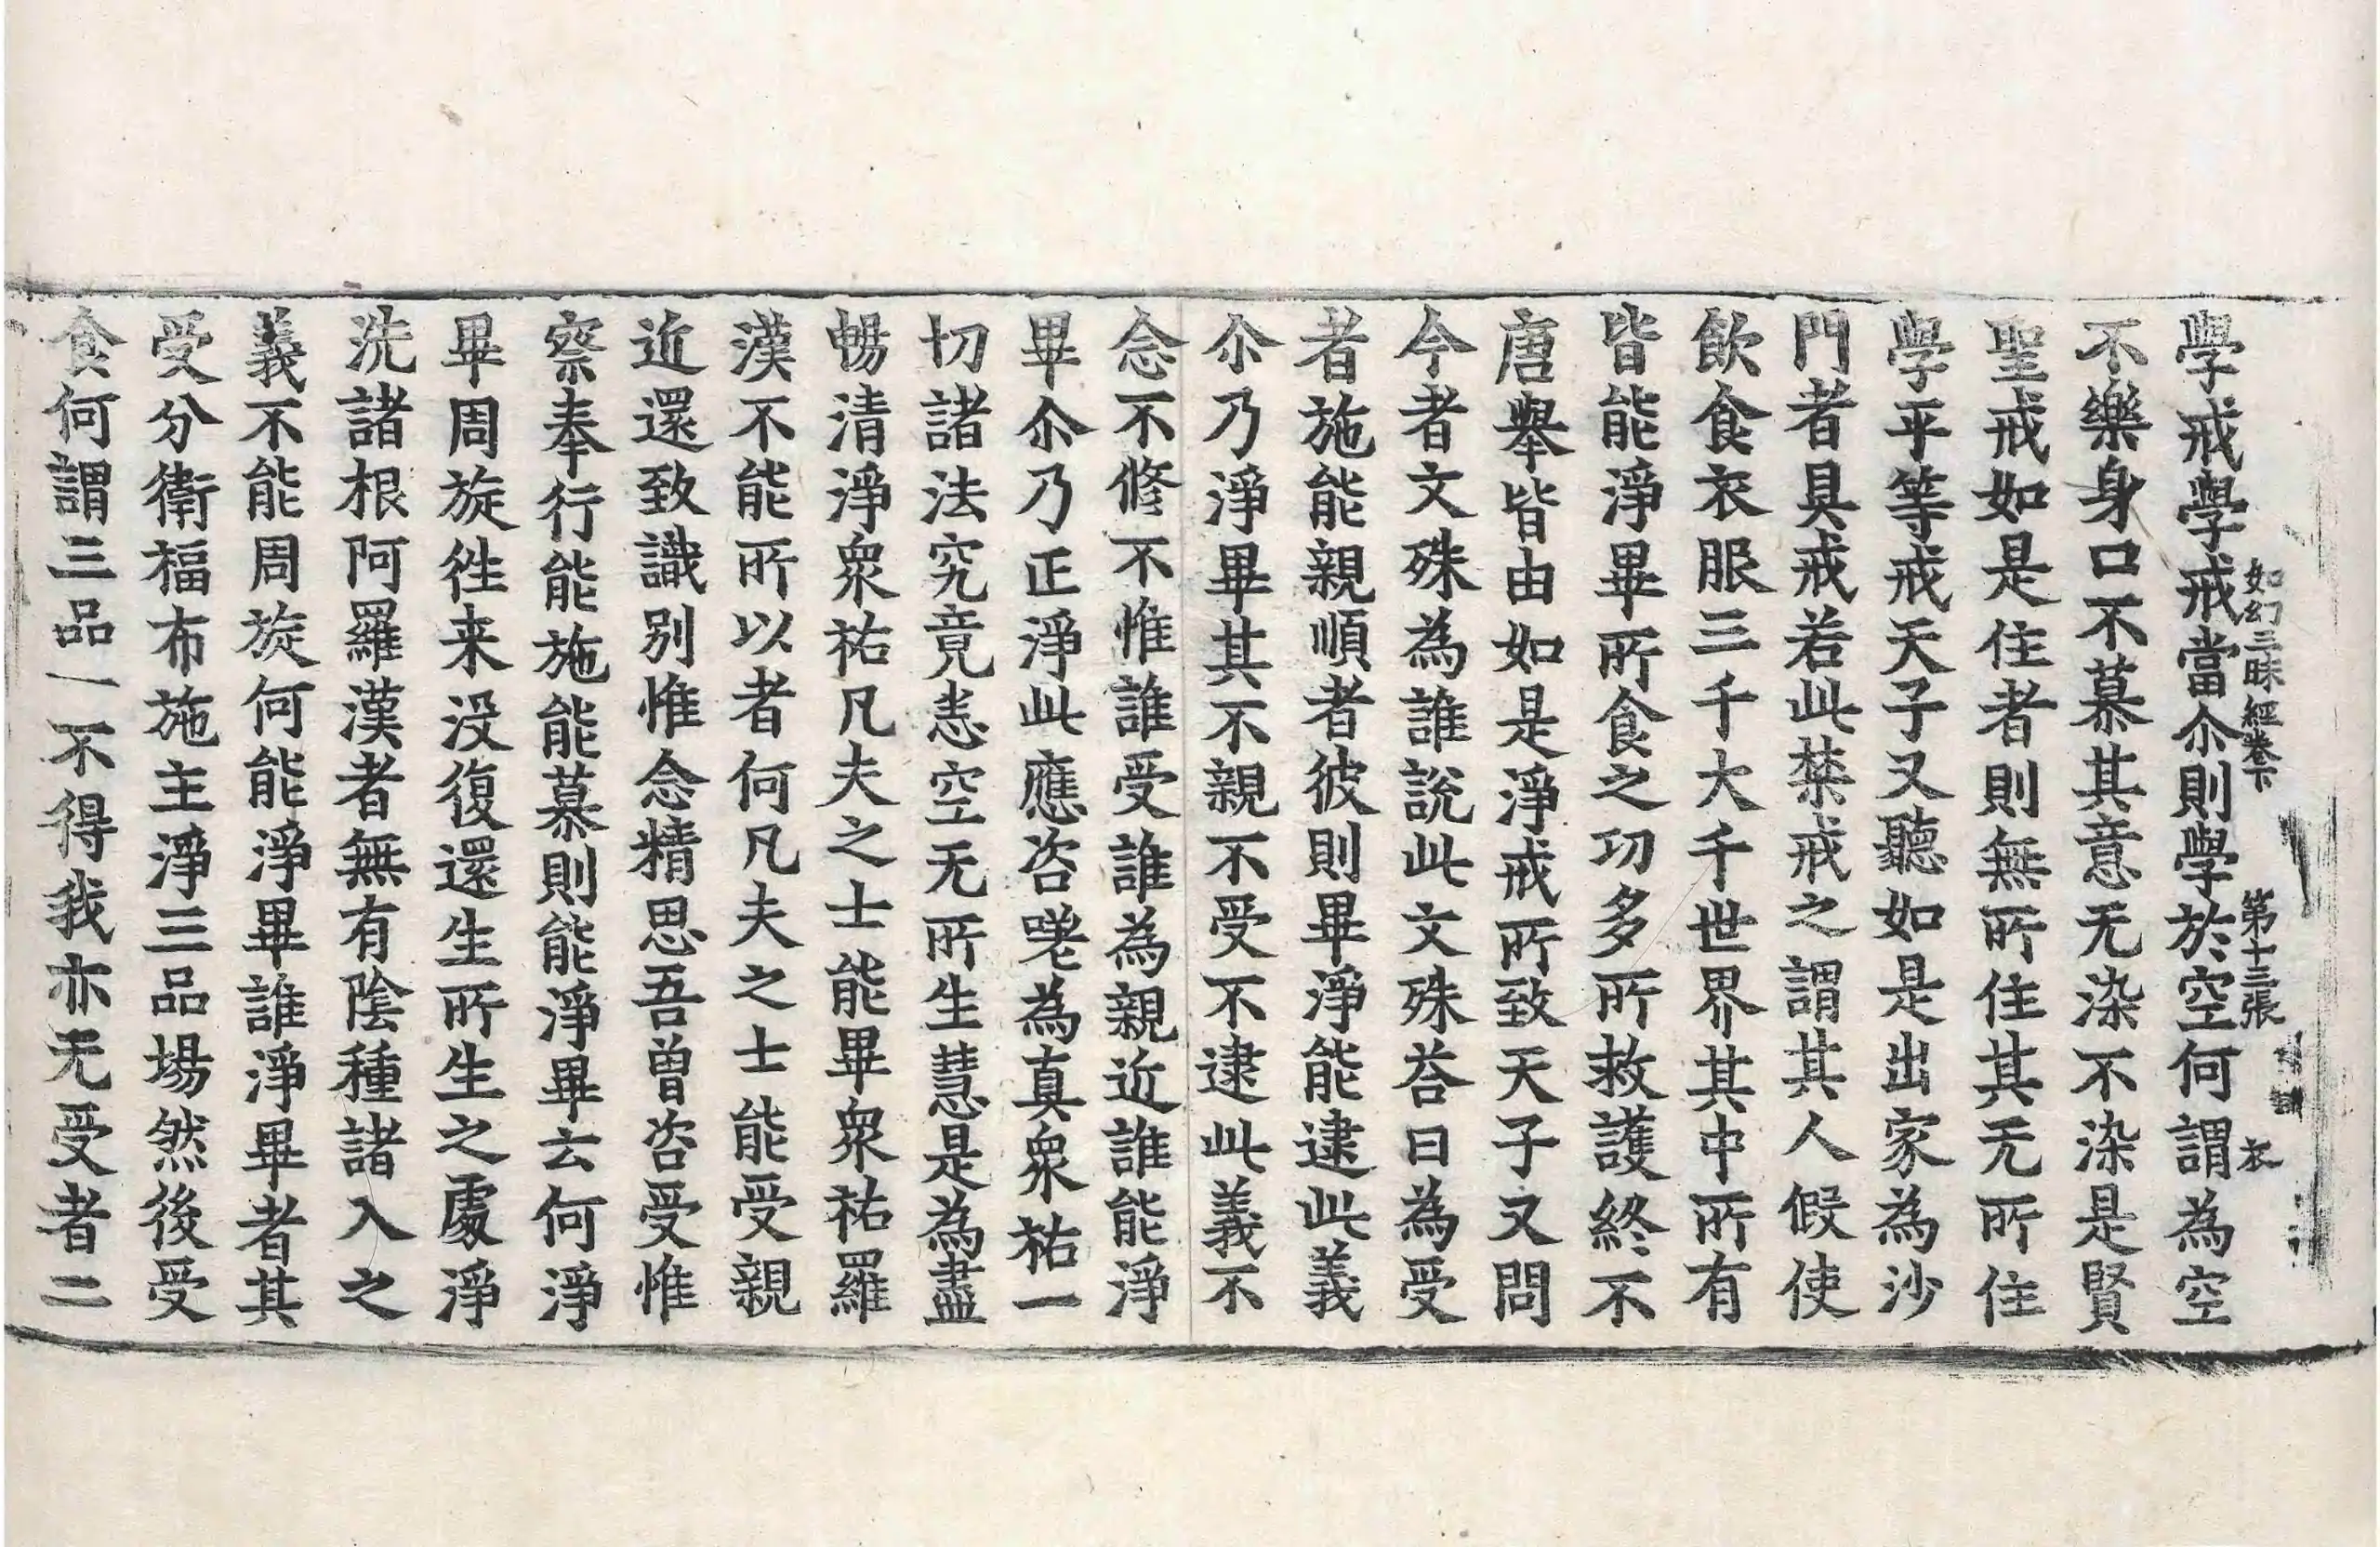 如幻三昧經卷下 第十三張 衣
學戒學戒當尒則學於空何謂為空
不樂身口不慕其意无染不染是賢
聖戒如是住者則無所住其无所住
學平等戒天子又聽如是出家為沙
門者具戒若此禁戒之謂其人假使
飲食衣服三千大千世界其中所有
皆能淨畢所食之功多所救護終不
唐舉皆由如是淨戒所致天子又問
今者文殊為誰說此文殊荅曰為受
者施能親順者彼則畢淨能逮此義
尒乃淨畢其不親不受不逮此義不
念不修不惟誰受誰為親近誰能淨
畢尒乃正淨此應咨嗟為真衆祐一
切諸法究竟恚空无所生慧是為盡
暢清淨衆祐凡夫之士能畢衆祐羅
漢不能所以者何凡夫之士能受親
近還致識別惟念精思吾曾咨受惟
察奉行能施能慕則能淨畢云何淨
畢周旋徃来没復還生所生之處淨
洗諸根阿羅漢者無有陰種諸入之
義不能周旋何能淨畢誰淨畢者其
受分衛福布施主淨三品場然後受
食何謂三品一不得我亦无受者二